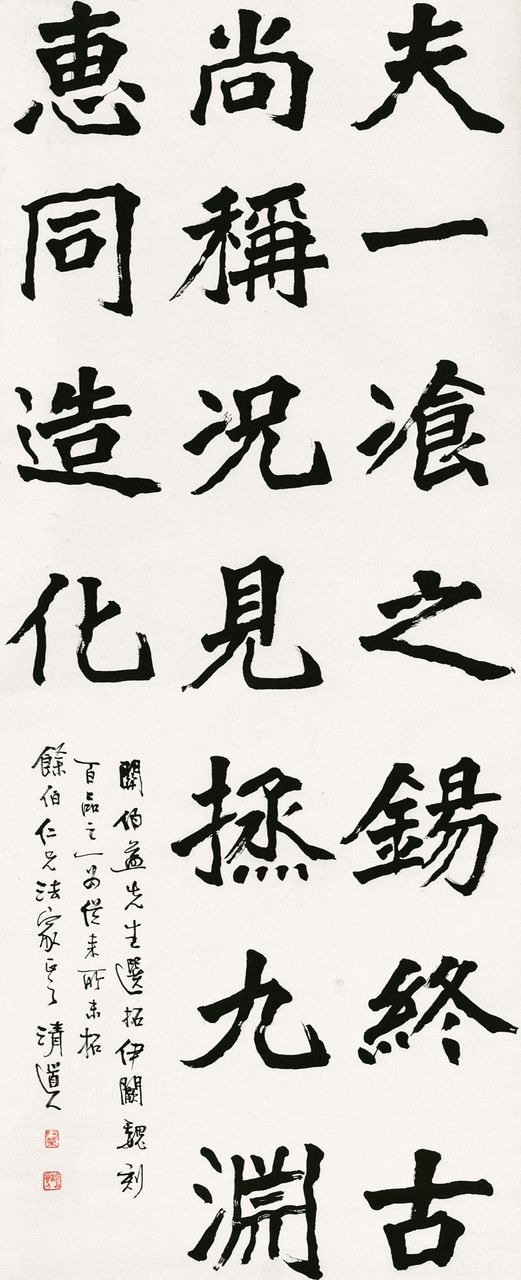 夫一飡之錫終古
尚稱况見拯九淵
恵同造化
關伯益先生選拓伊闕魏刻
百品之一為從来所未拓
餘伯仁兄法家正之 清道人